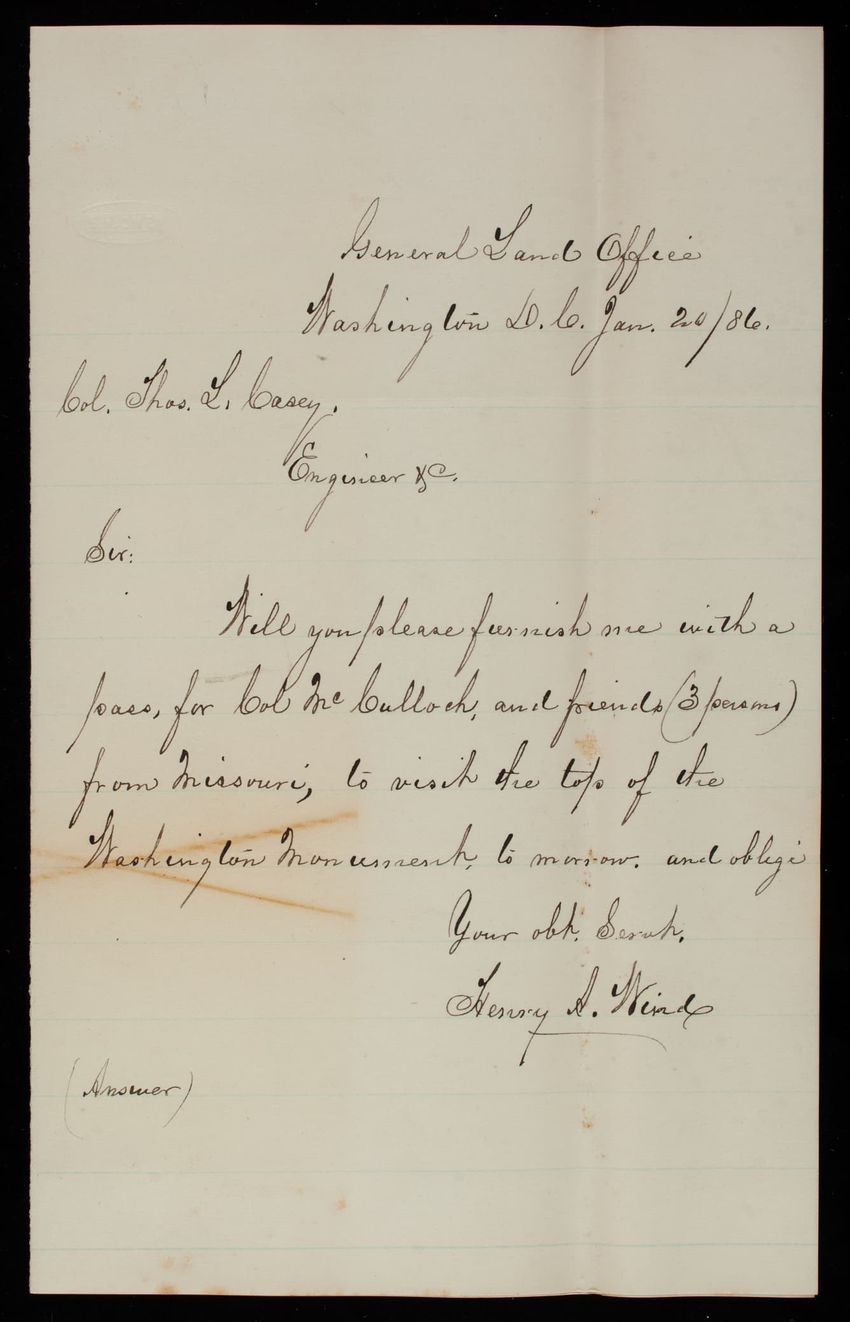 General Land Office
Washington D.C. Jan. 20/86.
Col. Thos. L. Casey.
Engineer &c.
Sir:
Will you please furnish me with a
pass, for Col Mc Culloch, and friends (3 persons)
from Missouri, to visit the top of the
Washington Monument, to morrow. and oblige
Your obt. Servt.
Henry A. Wind
(Answer)